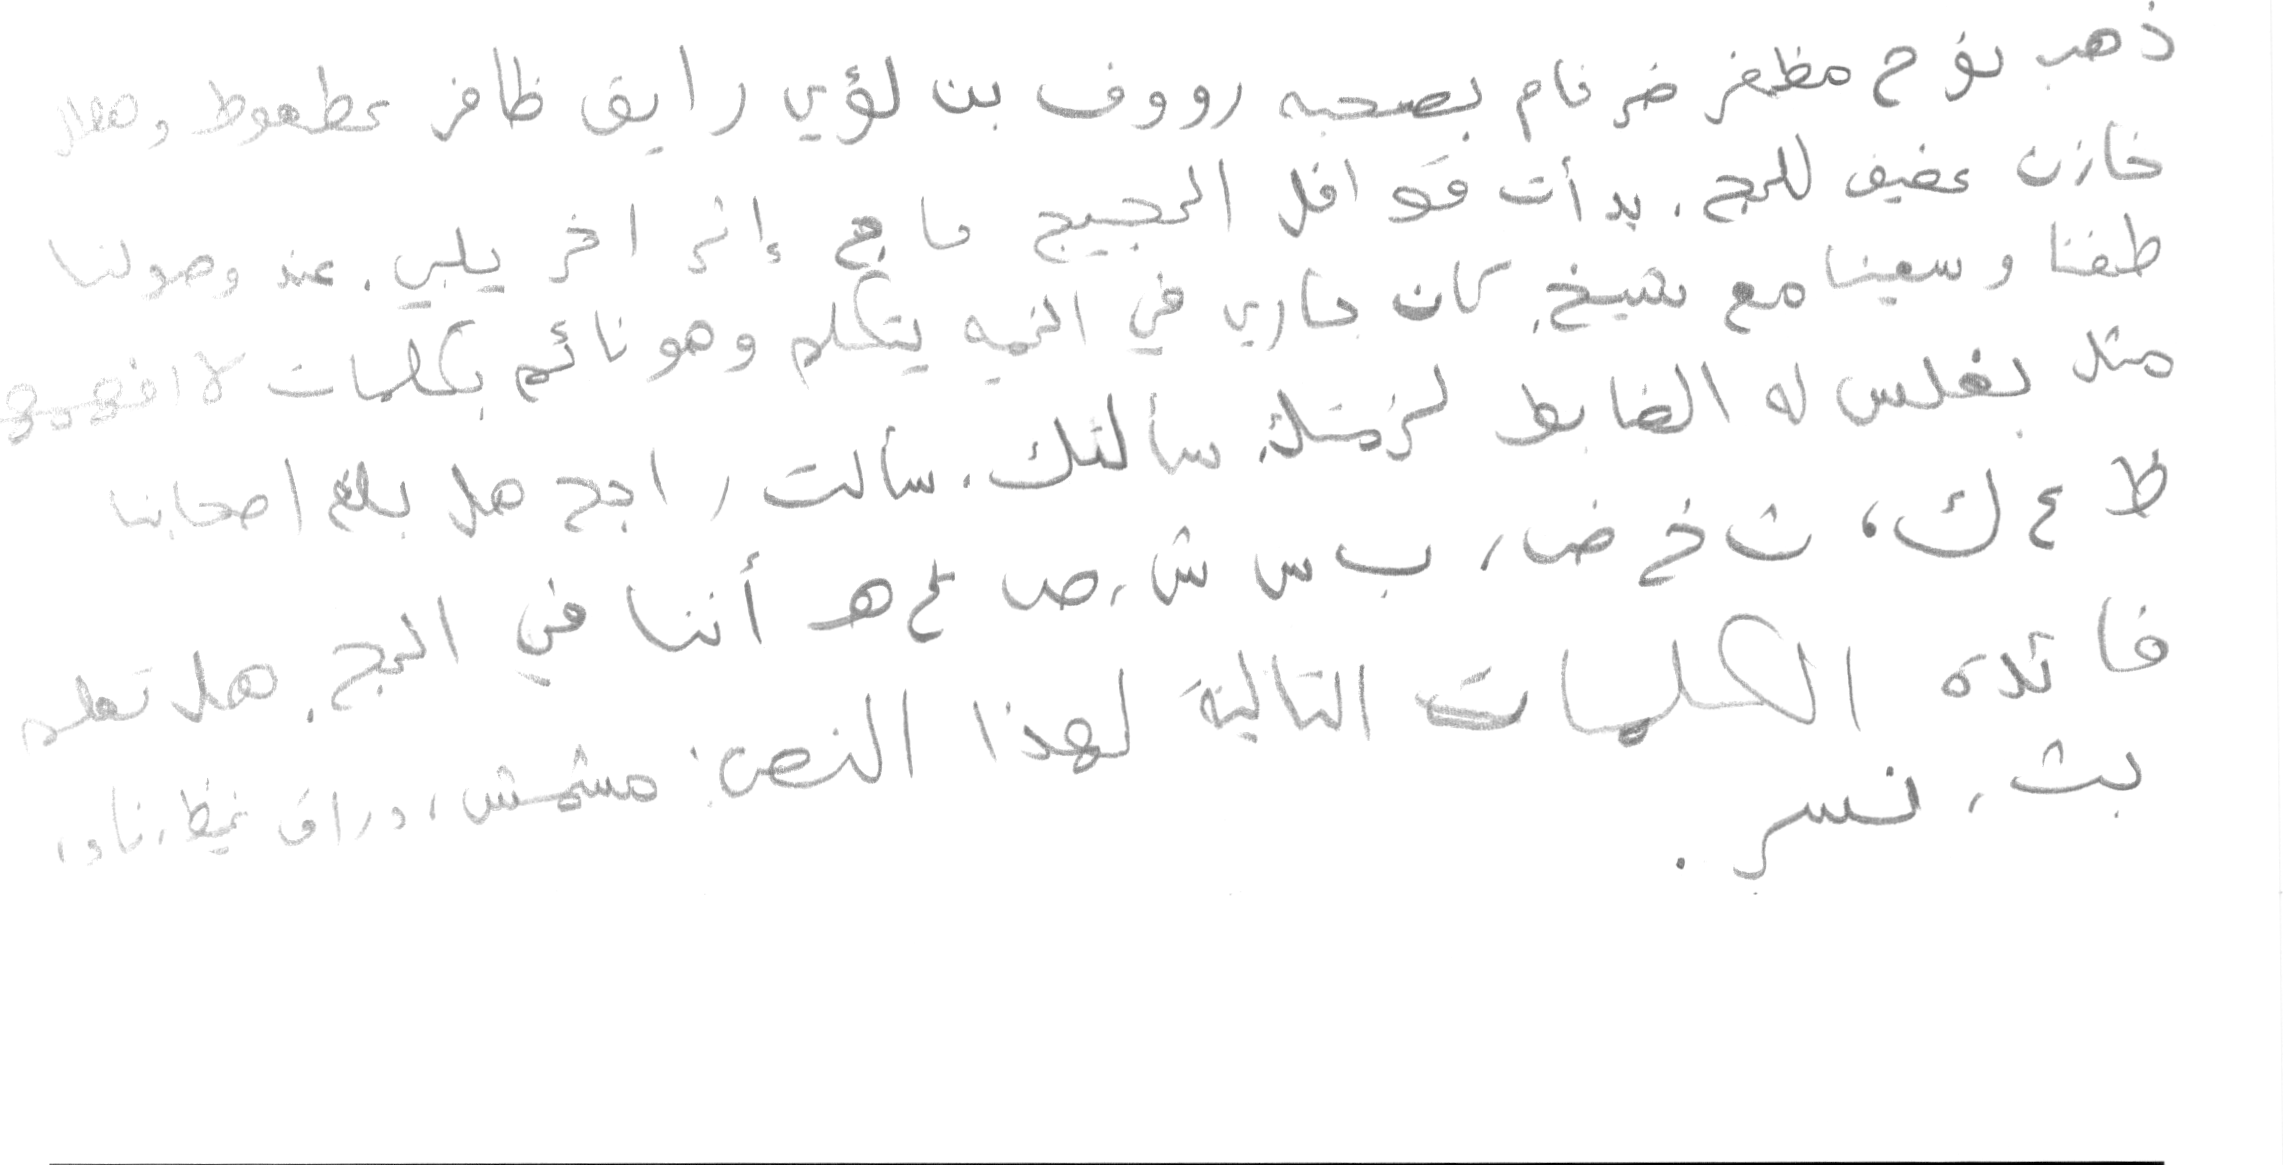 ذهب نوح مظفر ضرغام بصحبه رووف بن لؤي رايق ظافر عطعوط وهلال
خازن عفيف للحج. بدأت قوافل الحجيج حاج إثر اخر يلبي. عند وصولنا
طفنا وسعينا مع شيخ. كان جاري في الخيمه يتكلم وهو نائم بكلمات لا افهمها
مثل بغلس له الضابط لزمتك سألتك. سألت راجح هل بلغ اصحابنا
ظ ع ك، ث خ ض، ب س ش، ص غ هـ أننا في الحج. هل تعلم
فائدة الكلمات التالية لهذا النص: مشمش، دراق، غيظ، ناو،
بث، نسر.